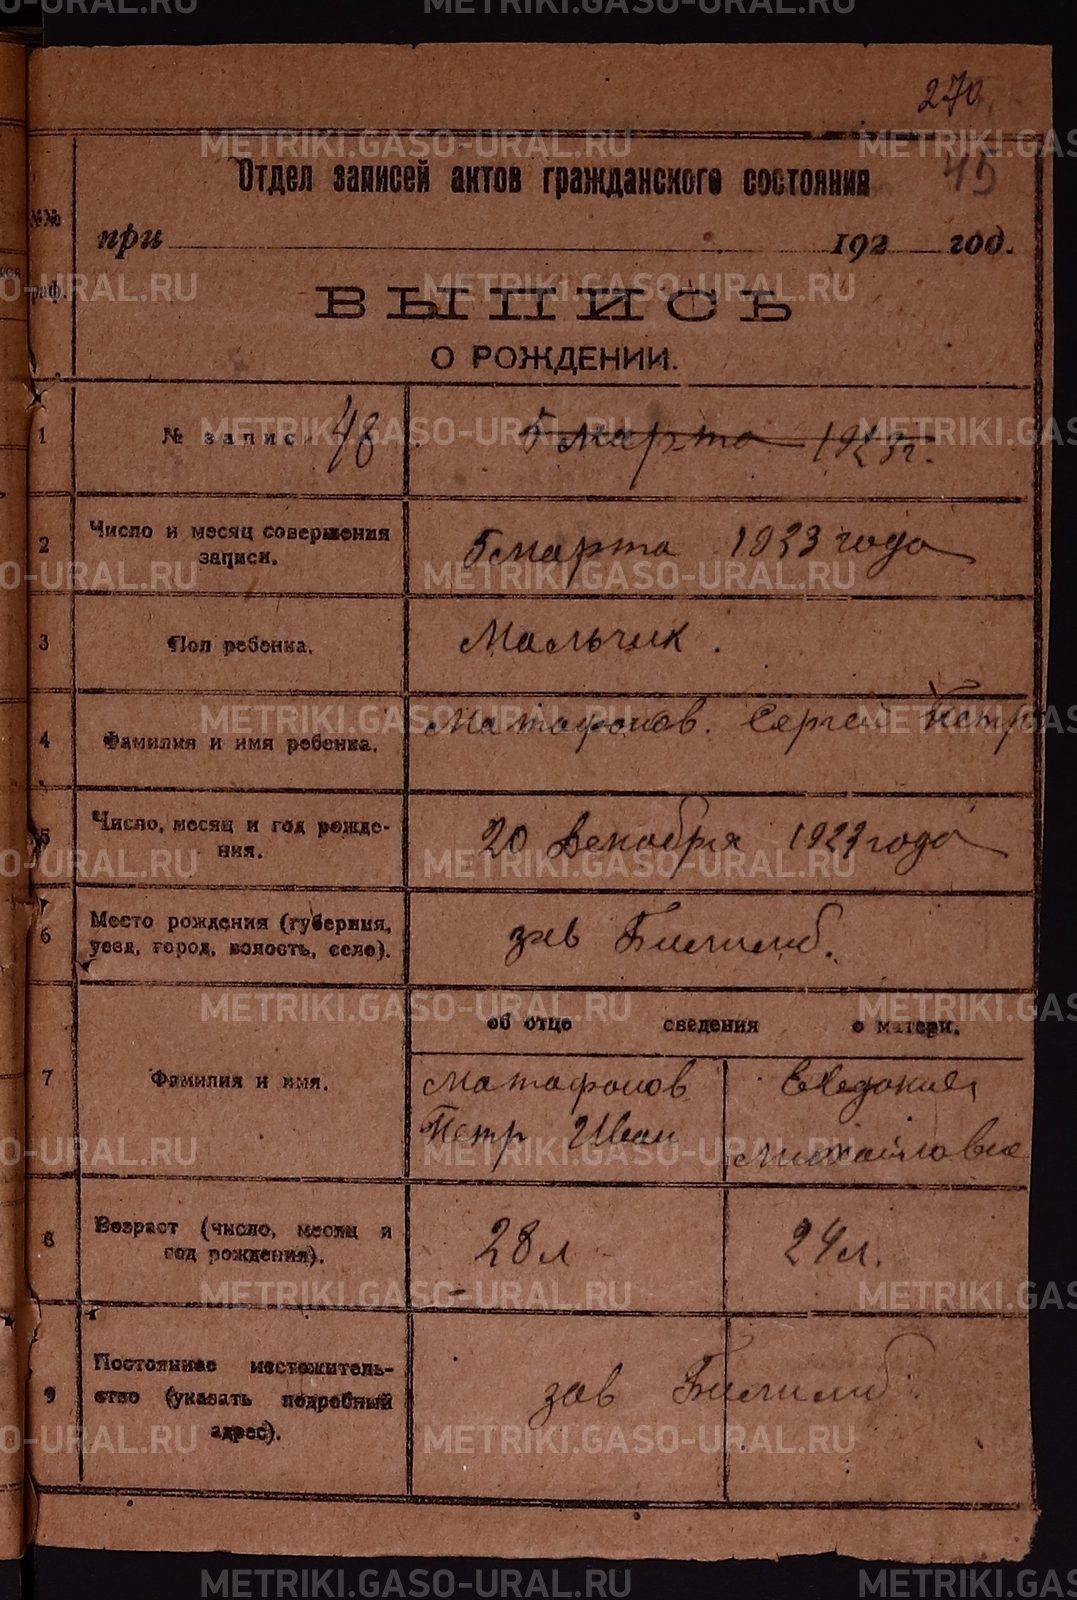 270
45
Отдел записей актов гражданского состояния
при 192 год.
№№
граф.
ВЫПИСЬ
О РОЖДЕНИИ.
1 № запис 48 5 марта 1923 г.
2 Число и месяц совершения
записи. 5 марта 1923 года
3 Пол ребенка. Мальчик.
4 Фамилия и имя ребенка. Матафонов. Сергей Петр
5 Число, месяц и год рожде-
ния. 20 декабря 1922 года
6 Место рождения (губерния,
уезд, город, волость, село). зав Билимб.
об отце сведения о матери.
7 Фамилия и имя. Матафонов Евдокия
Петр Иван Михайловна
8 Возраст (число, месяц и
год рождения). 28 л 24 л.
9 Постоянное местожитель-
ство (указать подробный
адрес). зав Билимб.
METRIKI.GASO-URAL.RU